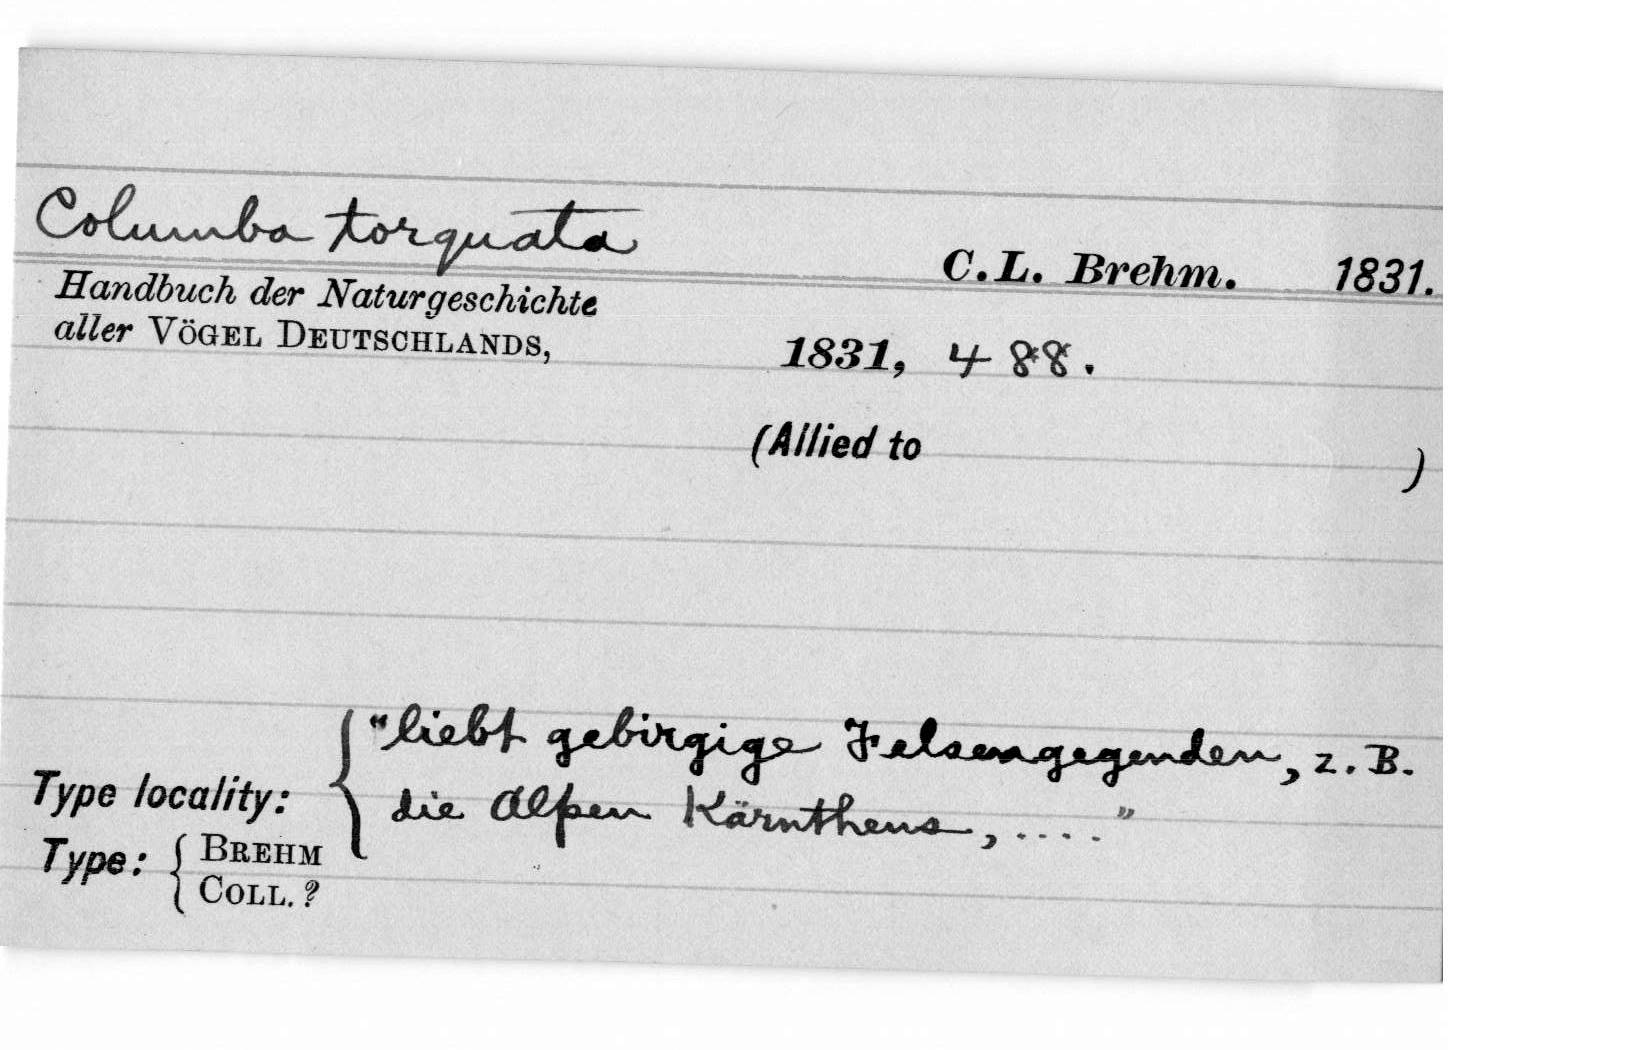 Columba torquata C.L. Brehm. 1831.
Handbuch der Naturgeschichte
aller VÖGEL DEUTSCHLANDS, 1831, 488.
(Allied to )
"liebt gebirgige Felsengegenden, z.B.
Type locality: die Alpen Kärnthens, ...."
Type: BREHM
COLL. ?